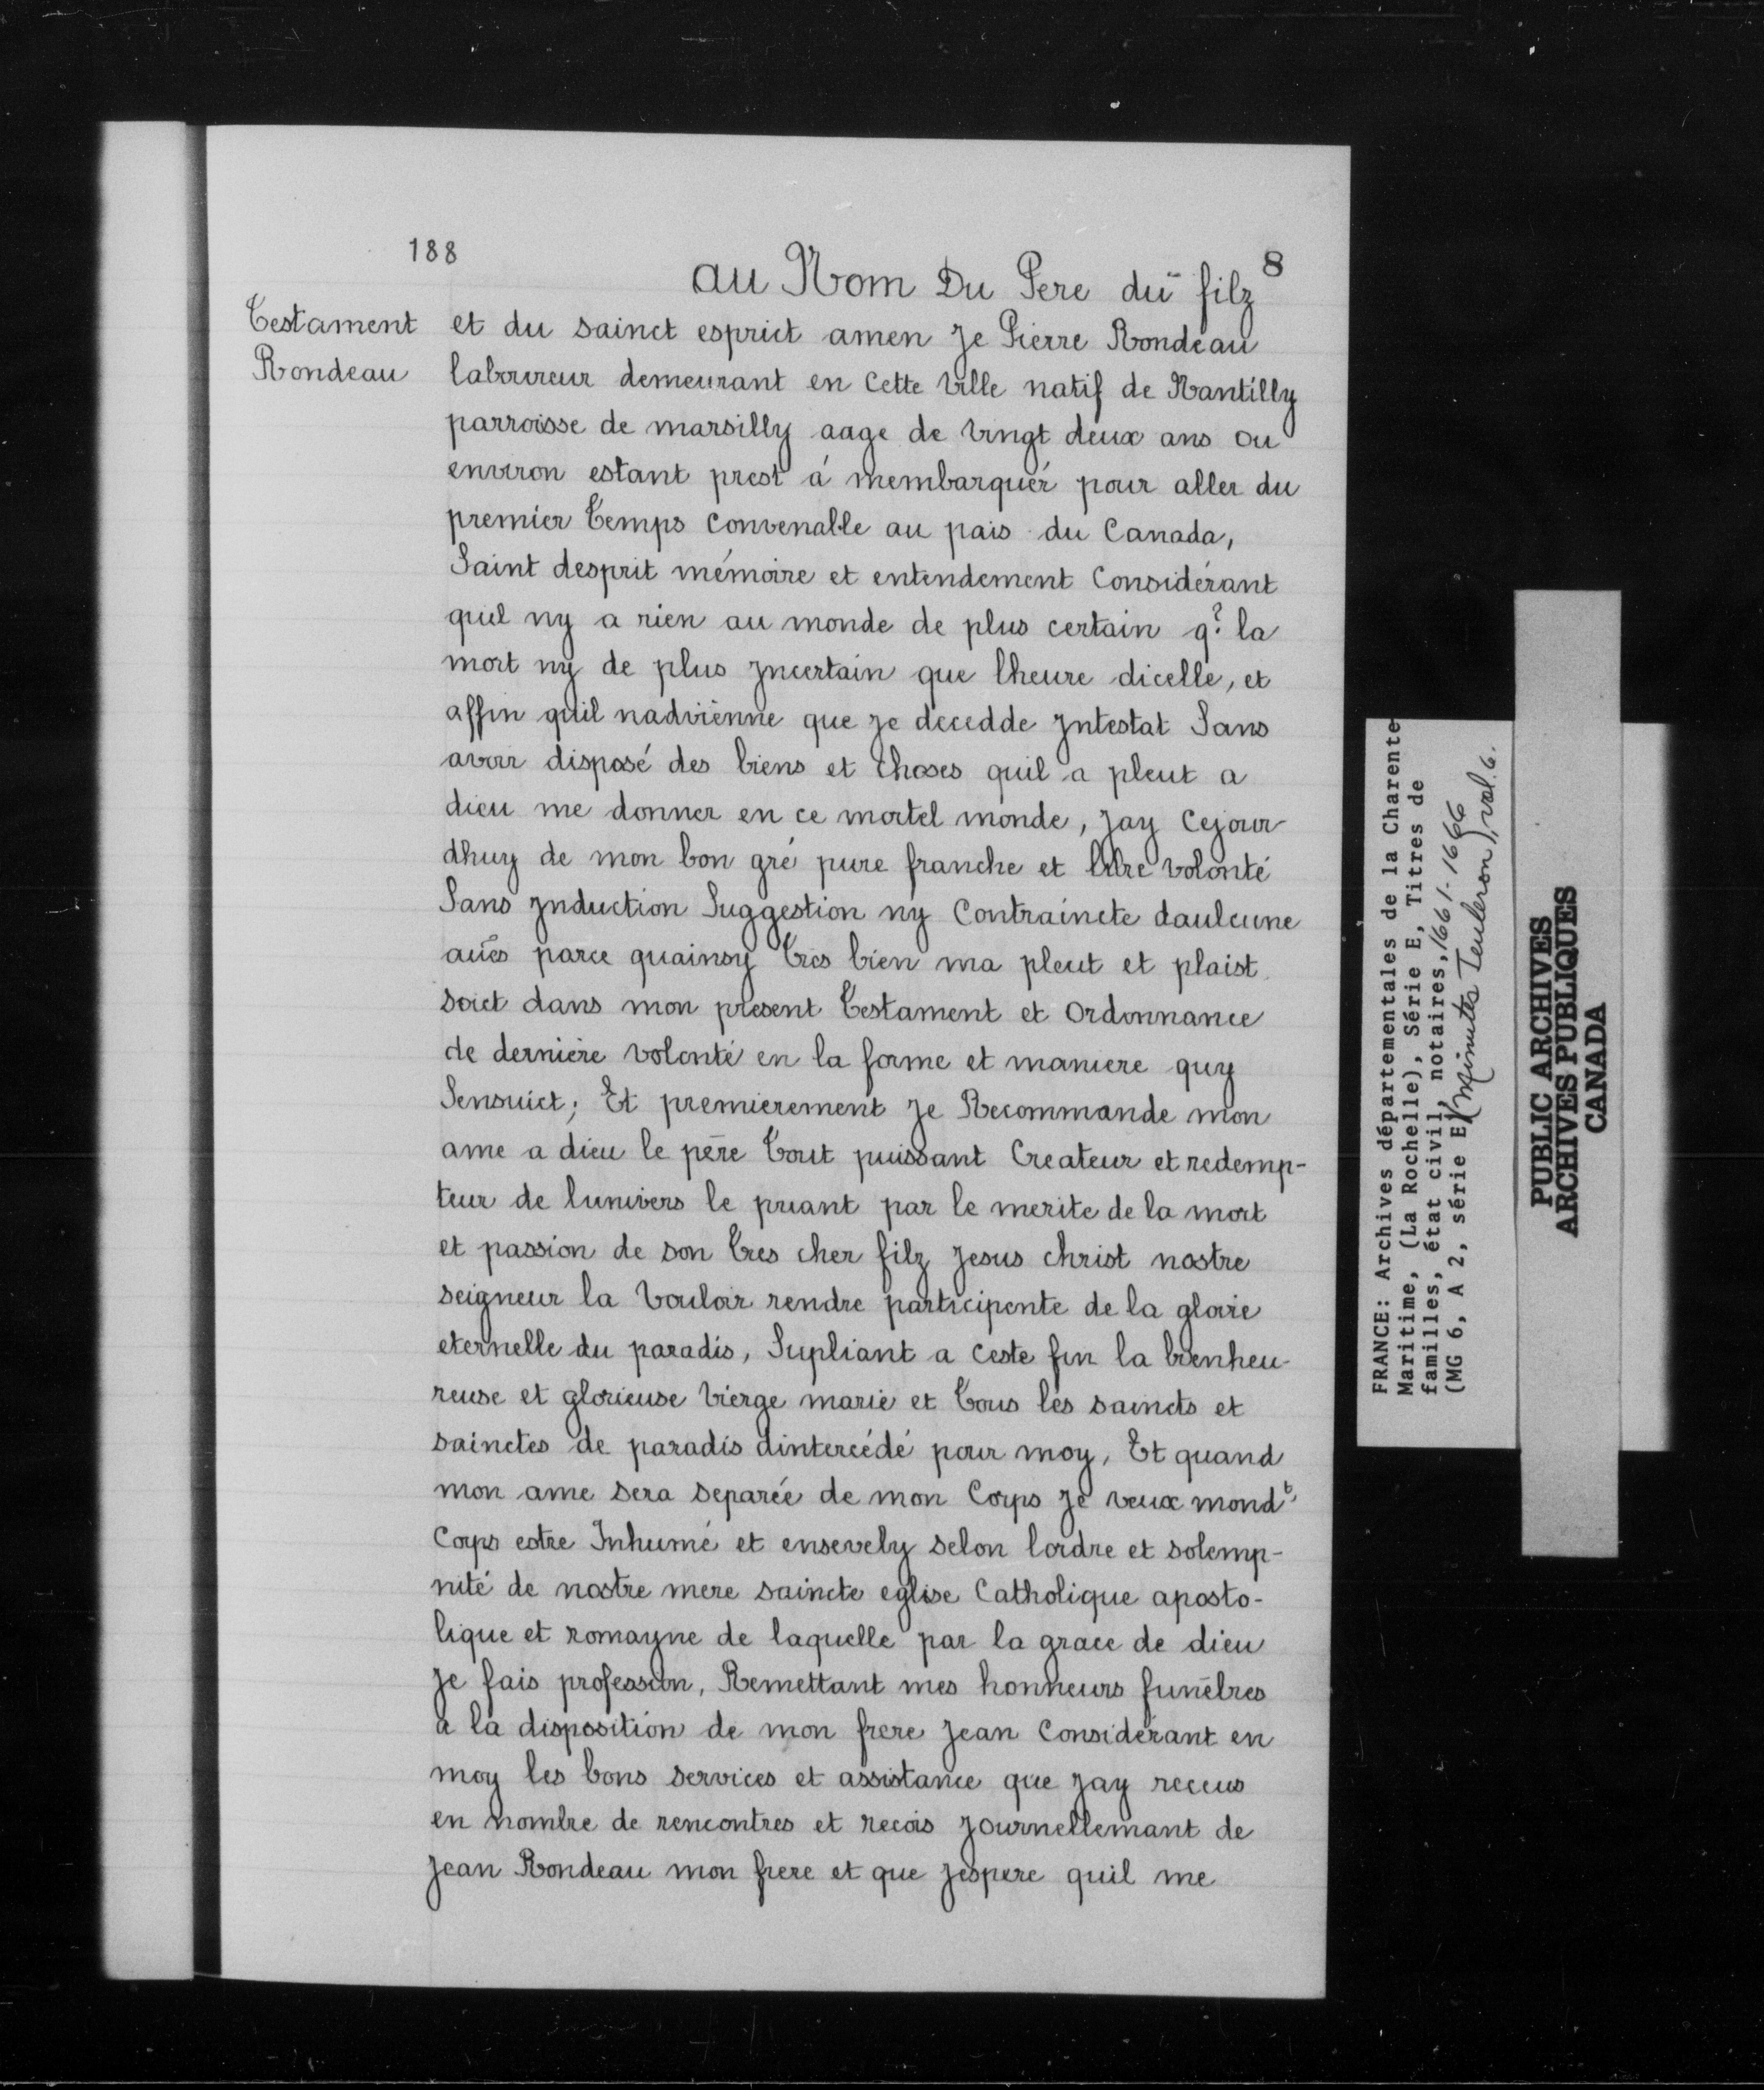 188
8
Testament
Rondeau
au Nom Du Pere du filz
et du sainct esprict amen Je Pierre Rondeau
laboureur demeurant en Cette ville natif de Nantilly
parroisse de marsilly aage de vingt deux ans ou
environ estant prest á membarquér pour aller du
premier Temps Convenable au pais du Canada,
Saint desprit mémoire et entendement Considérant
quil ny a rien au monde de plus certain q? la
mort ny de plus Jncertain que lheure dicelle, et
affin quil nadvienne que Je decedde Jntestat Sans
avoir disposé des biens et choses quil a pleut a
dieu me donner en ce mortel monde, Jay Cejour
dhuy de mon bon gré pure franche et libre volonté
Sans Jnduction Suggestion ny Contraincte daulcune
aues parce quainsy Tres bien ma pleut et plaist
soict dans mon present Testament et Ordonnance
de derniére volonté en la forme et maniere quy
Sensuict; Et premierement Je Recommande mon
ame a dieu le pére Tout puissant Createur et redemp-
teur de lunivers le priant par le merite de la mort
et passion de son Tres cher filz Jesus christ nostre
seigneur la vouloir rendre participente de la gloire
eternelle du paradis, Supliant a Ceste fin la bienheu-
reuse et glorieuse vierge marie et Tous les saincts et
sainctes de paradis dintercédé pour moy, Et quand
mon ame sera separée de mon Corps Je veux mondt
Corps estre Inhumé et ensevely selon lordre et solemp-
nité de nostre mere saincte eglise Catholique aposto-
lique et romayne de laquelle par la grace de dieu
Je fais profession, Remettant mes honneurs funébres
a la disposition de mon frere Jean Considérant en
moy les bons services et assistance que Jay receus
en nombre de rencontres et recois Journellemant de
Jean Rondeau mon frere et que Jespere quil me
FRANCE: Archives départementales de la Charente
Maritime, (La Rochelle), Série E, Titres de
familles, état civil, notaires, 1661-1666
(MG 6, A 2, série E) (Minutes Teuleron), vol. 6.
PUBLIC ARCHIVES
ARCHIVES PUBLIQUES
CANADA